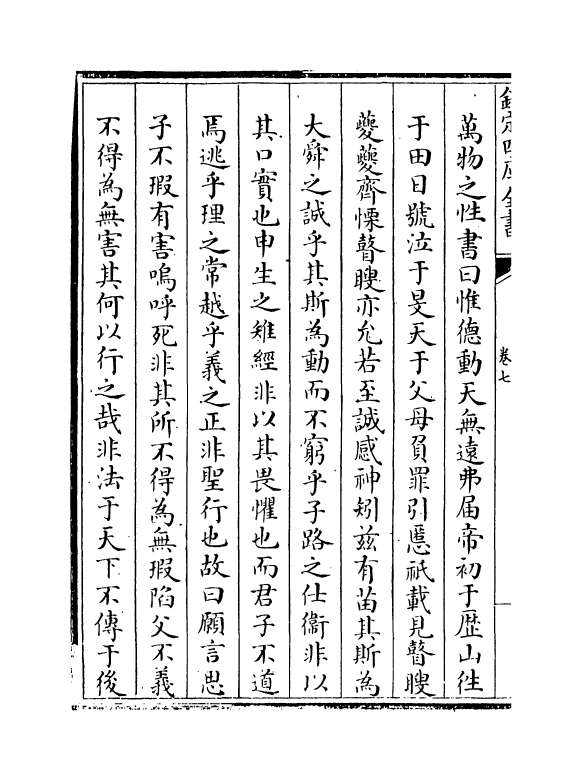 欽定四庫全書
卷七
萬物之性書曰惟德動天無遠弗届帝初于歴山往
于田日號泣于旻天于父母負罪引慝祇載見瞽瞍
夔夔齊慄瞽瞍亦允若至諴感神矧兹有苗其斯為
大舜之誠乎其斯為動而不窮乎子路之仕衞非以
其口實也申生之雉經非以其畏懼也而君子不道
焉逃乎理之常越乎義之正非聖行也故曰願言思
子不瑕有害嗚呼死非其所不得為無瑕陷父不義
不得為無害其何以行之哉非法于天下不傳于後